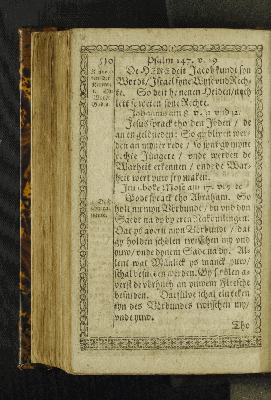 510 Psalm 147. v. 19
De HERE deit Jacob kundt syn
Wordt / Israel syne Wyse vnd Rech-
te. So deit he nenen Heiden / noch
leth se weten syne Rechte.
Johannis am 8. v. 31 vnd 32.
Jesus sprack tho den Jöden / de
an en geldueden: So gy bliuen wer-
den an myner rede / so synt gy myne
rechte Jüngere / vnde werden de
Warheit erkennen / vnde de War-
heit wert juw fry maken.
Im 1. boke Mosis am 17. v. 9. 10
Godt sprack tho Abraham. So
holt nu myn Verbundt / du vnd dyn
Saedt na dy by eren Nakömlingen.
Dat ys auerst myn Verbundt / dat
gy holden schölen twischen my vnd
juw / vnde dynem Sade na dy. Al-
lent wat Manlick ys manck juw /
schal besneden werden. Gy schölen a-
uerst de vörhudt an juwem Flesche
besniden. Datsülue schal ein teken
syn des Verbundes twisschen my /
vnde juw.
Tho